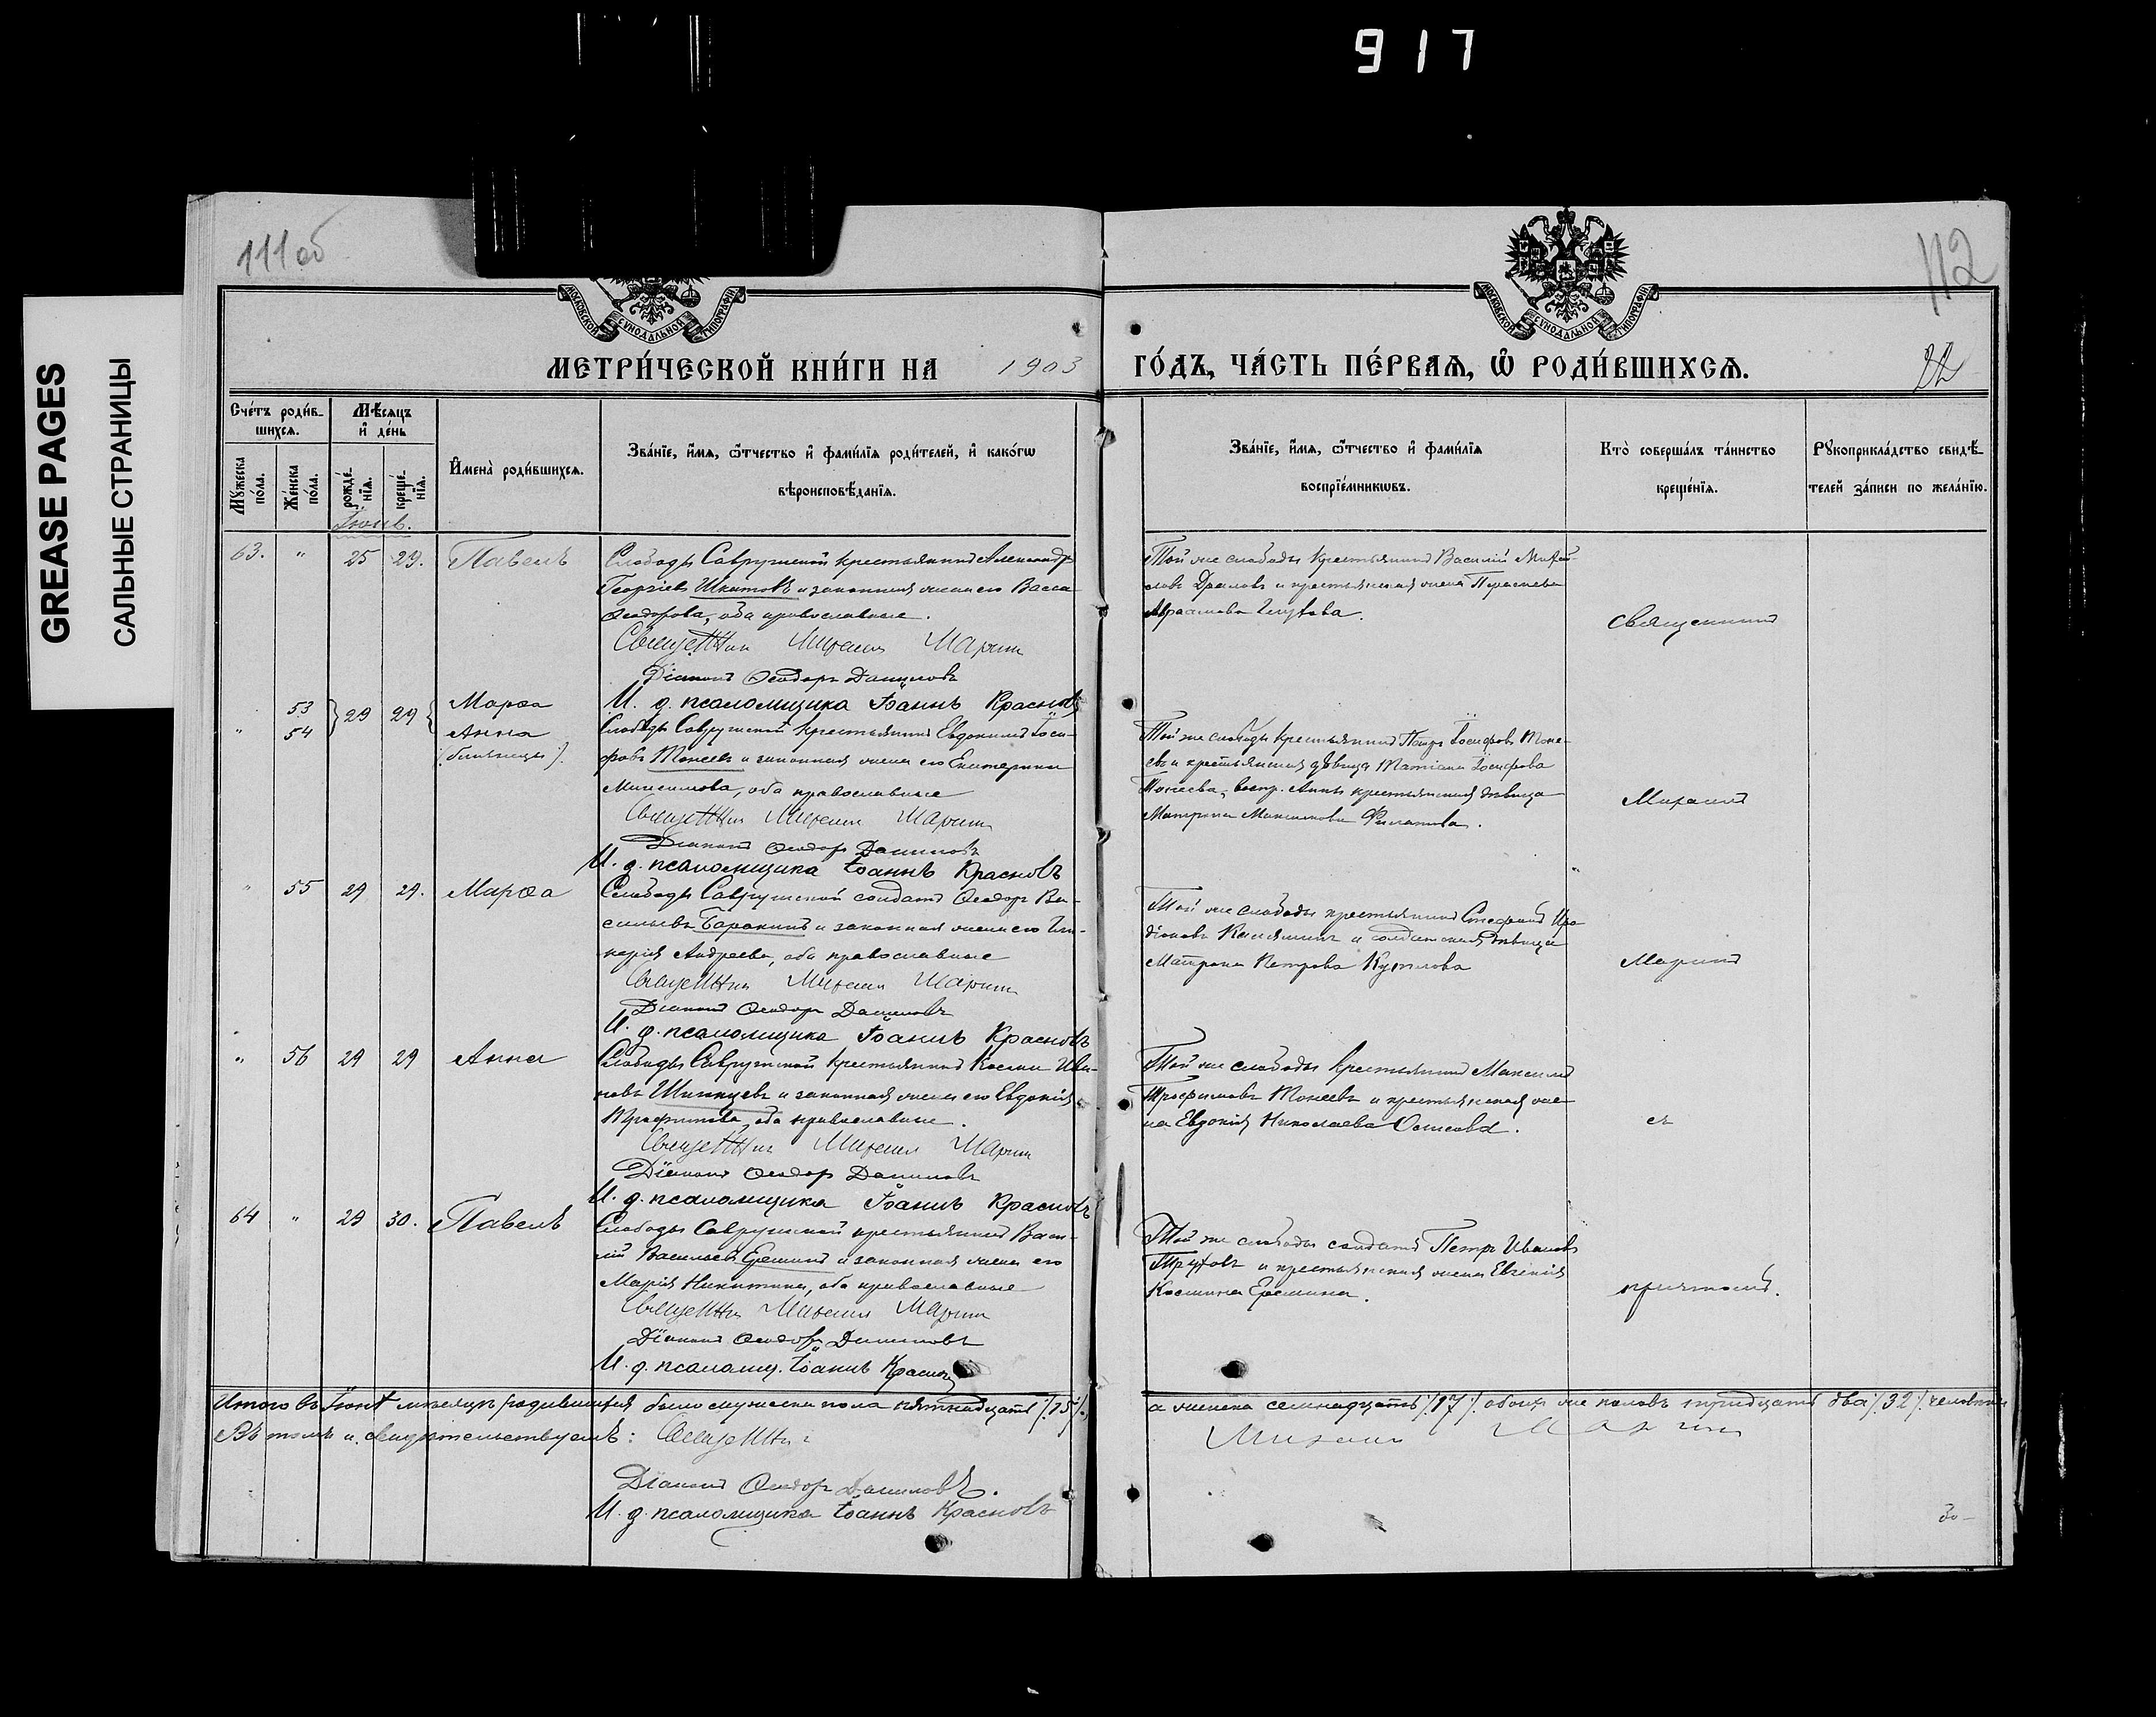 917
GREASE PAGES
САЛЬНЫЕ СТРАНИЦЫ
111 об
112
МОСКОВСКОЙ СѴНОДАЛЬНОЙ ТИПОГРАФІИ
МОСКОВСКОЙ СѴНОДАЛЬНОЙ ТИПОГРАФІИ
МЕТРИ́ЧЕСКОЙ КНИ́ГИ НА 1903 ГО́ДЪ, ЧА́СТЬ ПЕ́РВАЯ, Ѡ҆ РОДИ́ВШИХСЯ.
22
Сче́тъ роди́в-
шихся.
Мѣ́сяцъ
и҆ де́нь
Мꙋ́жеска по́ла.
Же́нска по́ла.
рожде́-нїѧ.
креще́-нїѧ.
И҆мена̀ роди́вшихся.
Зва́нїе, и҆́мѧ, ѻ҆́тчество и҆ фами́лїѧ роди́телей, и҆ како́гѡ
вѣроисповѣ́данїѧ.
Зва́нїе, и҆́мѧ, ѻ҆́тчество и҆ фами́лїѧ
воспрїе́мникѡвъ.
Кто̀ соверша́лъ та́инство
креще́нїѧ.
Рꙋкоприкла́дство свидѣ́-
телей за́писи по жела́нїю.
Іюнь.
63. " 25 29. Павелъ
Слободы Саврушской крестьянинъ Александръ
Георгіевъ Шкатовъ и законная жена его Васса
Ѳеодорова, оба православные.
Священникъ Михаилъ Маринъ
Діаконъ Ѳеодоръ Даниловъ
И. д. псаломщика Іоаннъ Красновъ
Той же слободы крестьянинъ Василій Михай-
ловъ и крестьянская жена Параскева
Авраамова Глухова.
Священникъ
" 53 54 29 29 Марѳа
Анна
(близнецы).
Слободы Саврушской крестьянинъ Евдокимъ Іоси-
фовъ Мокеевъ и законная жена его Екатерина
Максимова, оба православные
Священникъ Михаилъ Маринъ
Діаконъ Ѳеодоръ Даниловъ
И. д. псаломщика Іоаннъ Красновъ
Той же слободы крестьянинъ Петръ Іосифовъ Моке-
евъ и крестьянская дѣвица Матіана Іосифова
Мокеева, воспр. Анны крестьянская дѣвица
Матрона Максимова Филатова.
Михаилъ
" 55 29 29. Марѳа
Слободы Саврушской солдатъ Ѳеодоръ Ва-
сильевъ Баракинъ и законная жена его Гли-
керія Андреева, оба православные
Священникъ Михаилъ Маринъ
Діаконъ Ѳеодоръ Даниловъ
И. д. псаломщика Іоаннъ Красновъ
Той же слободы крестьянинъ Стефанъ Иро-
діоновъ и солдатская дѣвица
Матрона Петрова Кутлова
Маринъ
" 56 29 29 Анна
Слободы Саврушской крестьянинъ Косма Ива-
новъ Шипицевъ и законная жена его Евдокія
Трофимова, оба православные.
Священникъ Михаилъ Маринъ
Діаконъ Ѳеодоръ Даниловъ
И. д. псаломщика Іоаннъ Красновъ
Той же слободы крестьянинъ Максимъ
Трофимовъ Мокеевъ и крестьянская же-
на Евдокія Николаева Осипова.
съ
64 " 29 30. Павелъ
Слободы Саврушской крестьянинъ Васи-
лій Васильевъ Ереминъ и законная жена его
Марія Никитина, оба православные
Священникъ Михаилъ Маринъ
Діаконъ Ѳеодоръ Даниловъ
И. д. псаломщ. Іоаннъ Красновъ
Той же слободы солдатъ Петръ Ивановъ
Труховъ и крестьянская жена Евгенія
Космина Еремина.
причтомъ.
Итого въ Іюнѣ мѣсяцѣ родившихся было мужеска пола пятнадцать /15/, а женска семнадцать /17/ обоихъ же половъ тридцать два /32/ человѣка
Въ томъ и свидѣтельствуемъ: Священникъ Михаилъ Маринъ
Діаконъ Ѳеодоръ Даниловъ.
И. д. псаломщика Іоаннъ Красновъ